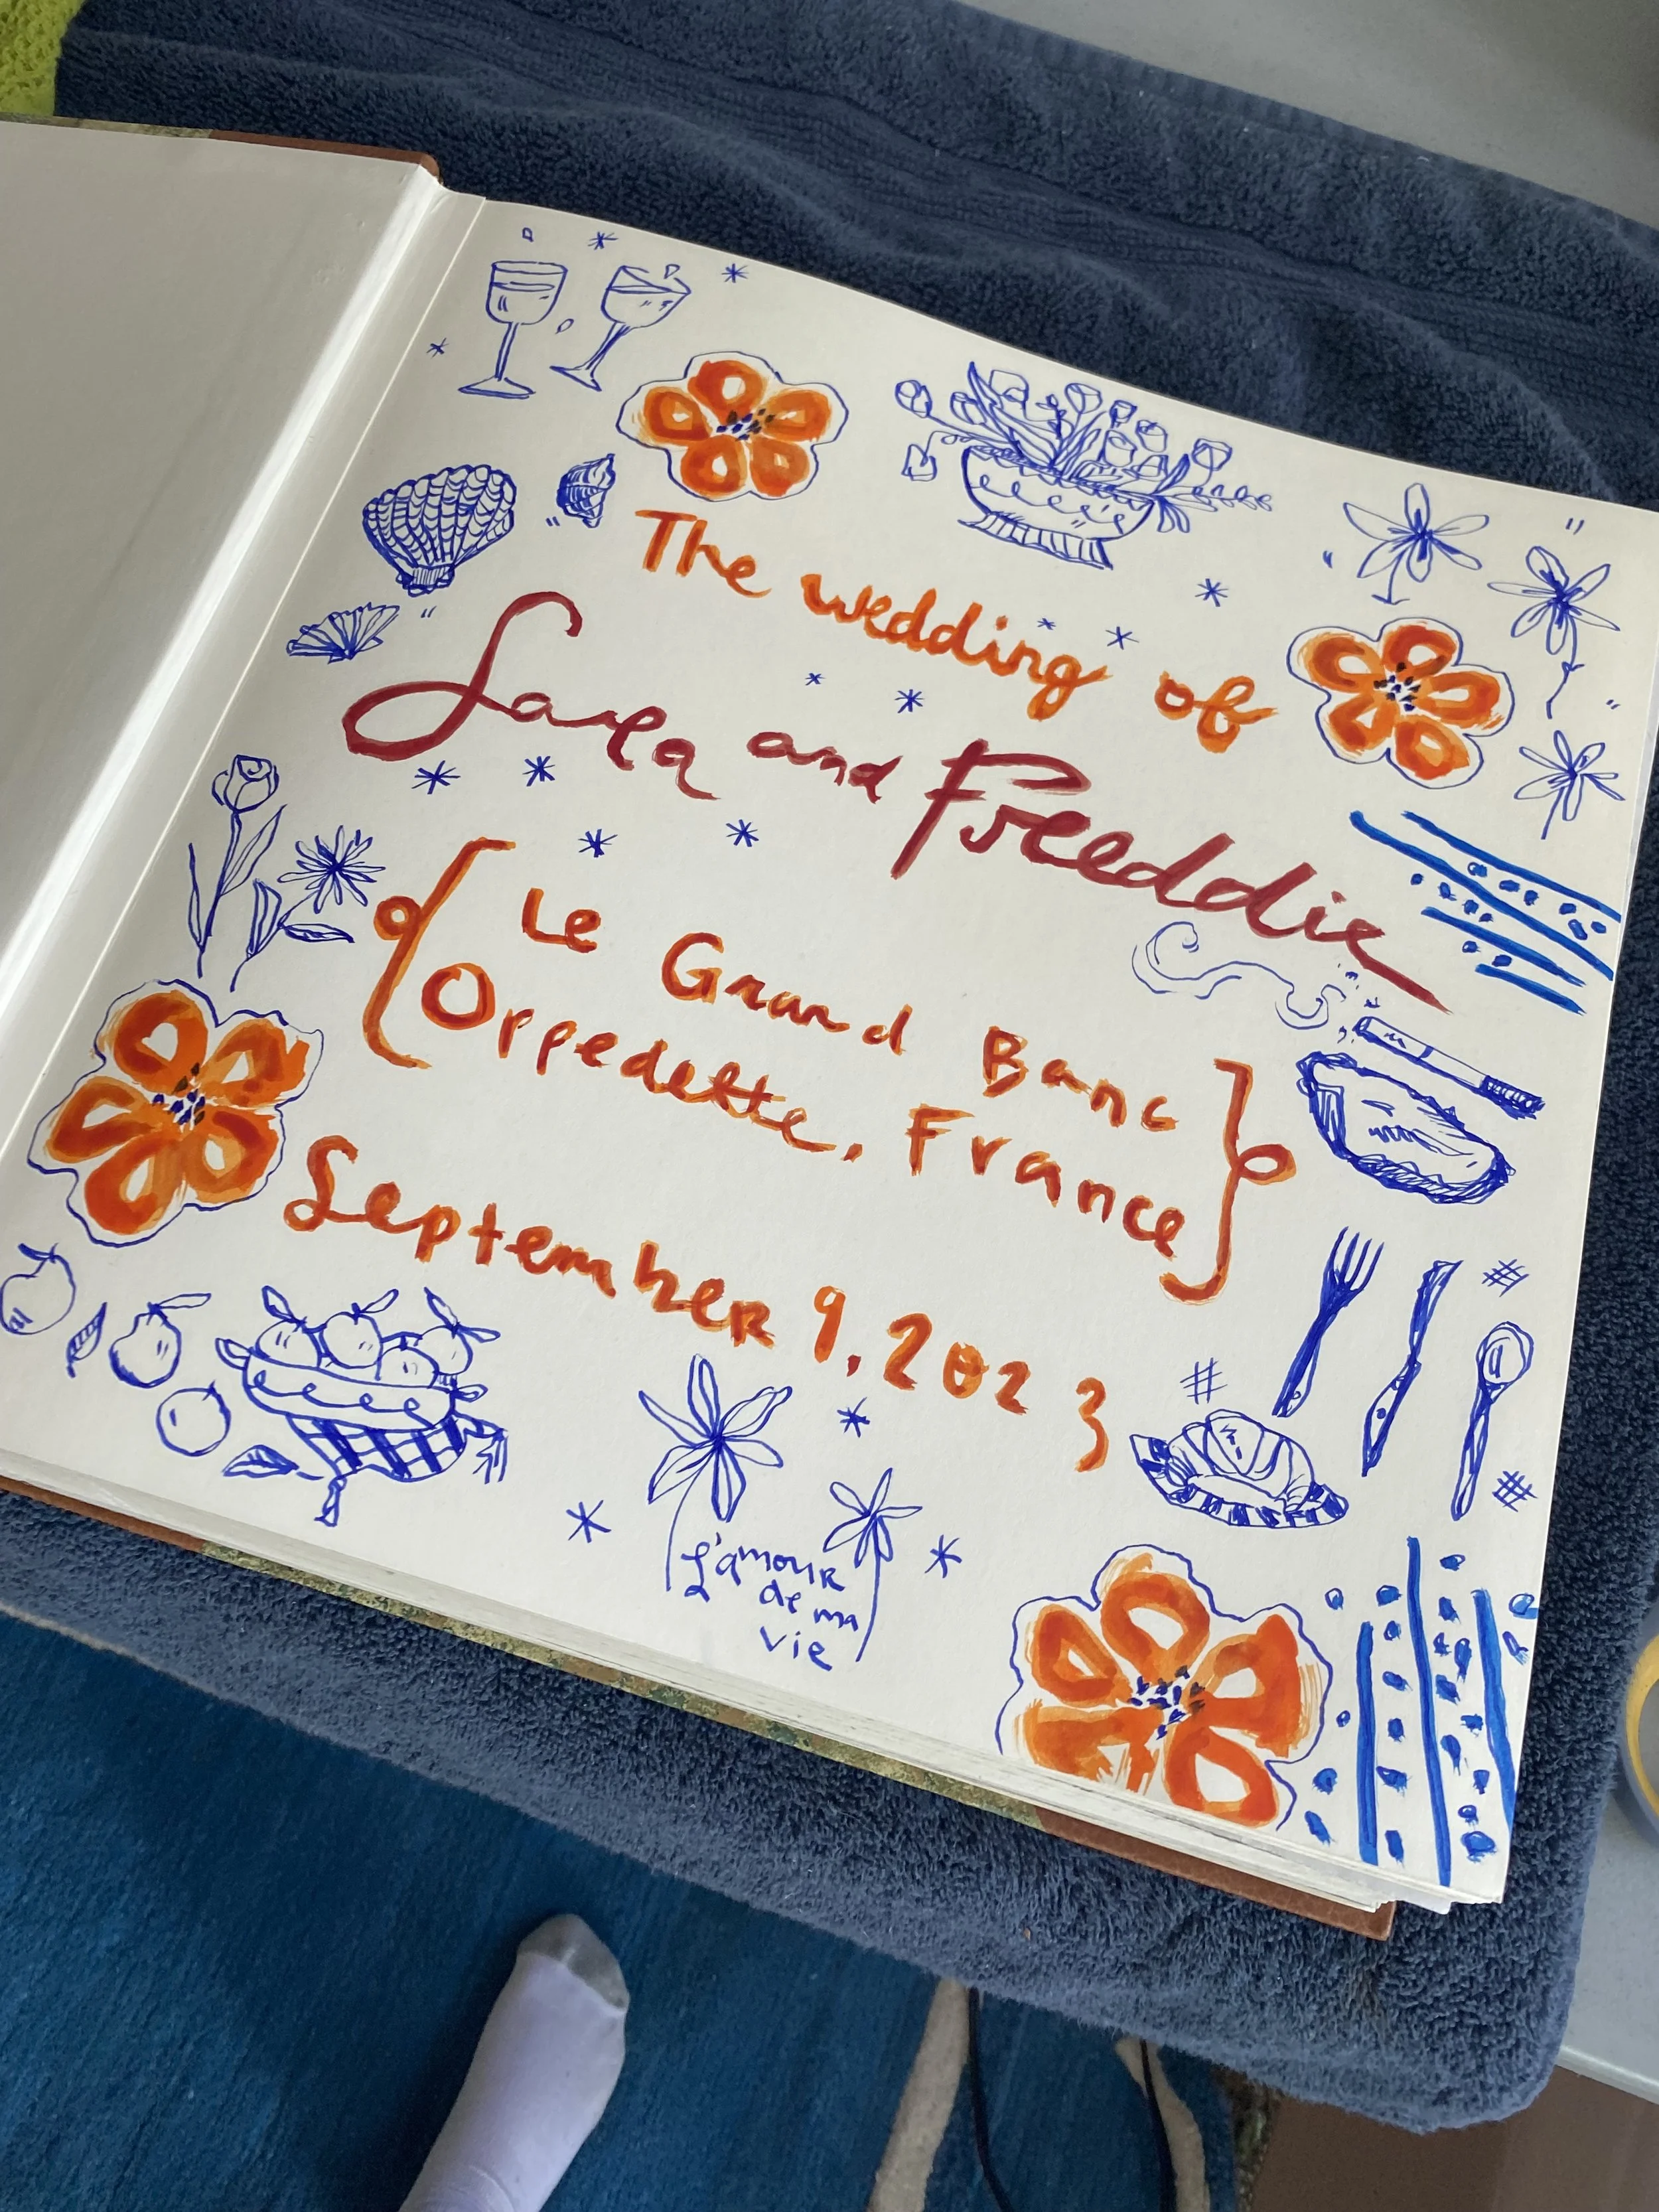 The wedding of
Sara and Freddie
Le Grand Banc
Oppedette, France
September 9, 2023
L'amour
de ma
vie